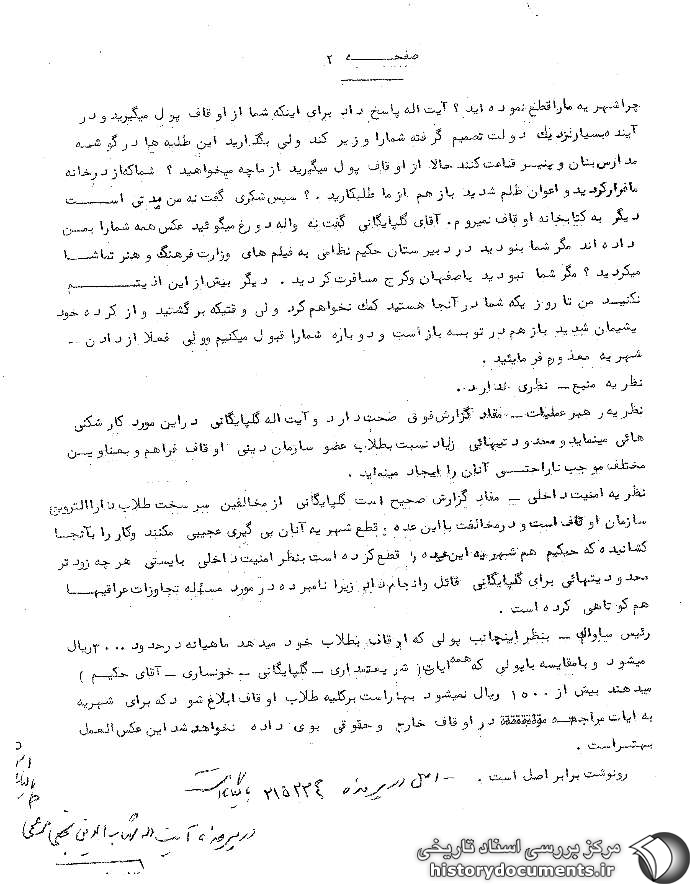 صفحه ۲
چرا شهریه ما را قطع نموده اید ؟ آیت اله پاسخ داد برای اینکه شما از اوقاف پول میگیرید و در
آینده بسیار نزدیك دولت تصمیم گرفته شما را وزیر کند ولی بگذارید این طلبه ها در گوشه
مدارس بنان و پنیر قناعت کنند حالا از اوقاف پول میگیرید از ما چه میخواهید ؟ شما که از در خانه
ما فرار کردید و اعوان ظلم شدید باز هم از ما طلبکارید . ؟ سپس شکری گفته من مدتی است
دیگر به کتابخانه اوقاف نمیروم . آقای گلپایگانی گفته واله دروغ میگوئید عکس همه شما را بمن
داده اند مگر شما بنودید در دبیرستان حکیم نظامی به فیلم های وزارت فرهنگ و هنر تماشا
میکردید ؟ مگر شما نبودید باصفهان وکرج مسافرت کردید . دیگر بیش از این اذیتم
نکنید من تا روزیکه شما در آنجا هستید کمك نخواهم کرد ولی وقتیکه برگشتید و از کرده خود
پشیمان شدید باز هم در توبه باز است و دوباره شما را قبول میکنیم وولی فعلا از دادن -
شهریه معذورم فرمایئید .
نظریه منبع ــ نظری ندارد .
نظریه رهبر عملیات ــ مفاد گزارش فوق صحت دارد و آیت اله گلپایگانی در این مورد کارشکنی
هائی مینماید و محدودیتهائی زیاد نسبت بطلاب عضو سازمان دینی اوقاف فراهم و بعناوین
مختلف موجب ناراحتی آنان را ایجاد مینماید .
نظریه امنیت داخلی ــ مفاد گزارش صحیح است گلپایگانی از مخالفین سرسخت طلاب دارالترویج
سازمان اوقاف است و در مخالفت با این عده و قطع شهریه آنان پی گیری عجیبی میکنند وکار را بآنجا
کشانیده که حکیم هم شهریه این عده را قطع کرده است بنظر امنیت داخلی بایستی هر چه زودتر
محدودیتهائی برای گلپایگانی قائل وانجام داد زیرا نامبرده در مورد مسئله تجاوزات عراقیها
هم کوتاهی کرده است .
رئیس ساواك ــ بنظر اینجانب پولی که اوقاف بطلاب خود میدهد ماهیانه در حدود ۳۰۰۰ ریال
میشود و با مقایسه با پولی که همه آیات ( شریعتمداری ــ گلپایگانی ــ خونساری ــ آقای حکیم )
میدهند بیش از ۱۵۰۰ ریال نمیشود بهتر است بر کلیه طلاب اوقاف ابلاغ شود که برای شهریه
به ایات مراجعه در اوقاف خارج و حقوقی بوی داده نخواهد شد این عکس العمل
بهتر است .
رونوشت برابر اصل است . - اصل در پرونده ۲۱۵۲۳۴ بایگانی است
در پرونده آیت اله شهاب الدین نجفی مرعشی
مرکز بررسی اسناد تاریخی
historydocuments.ir